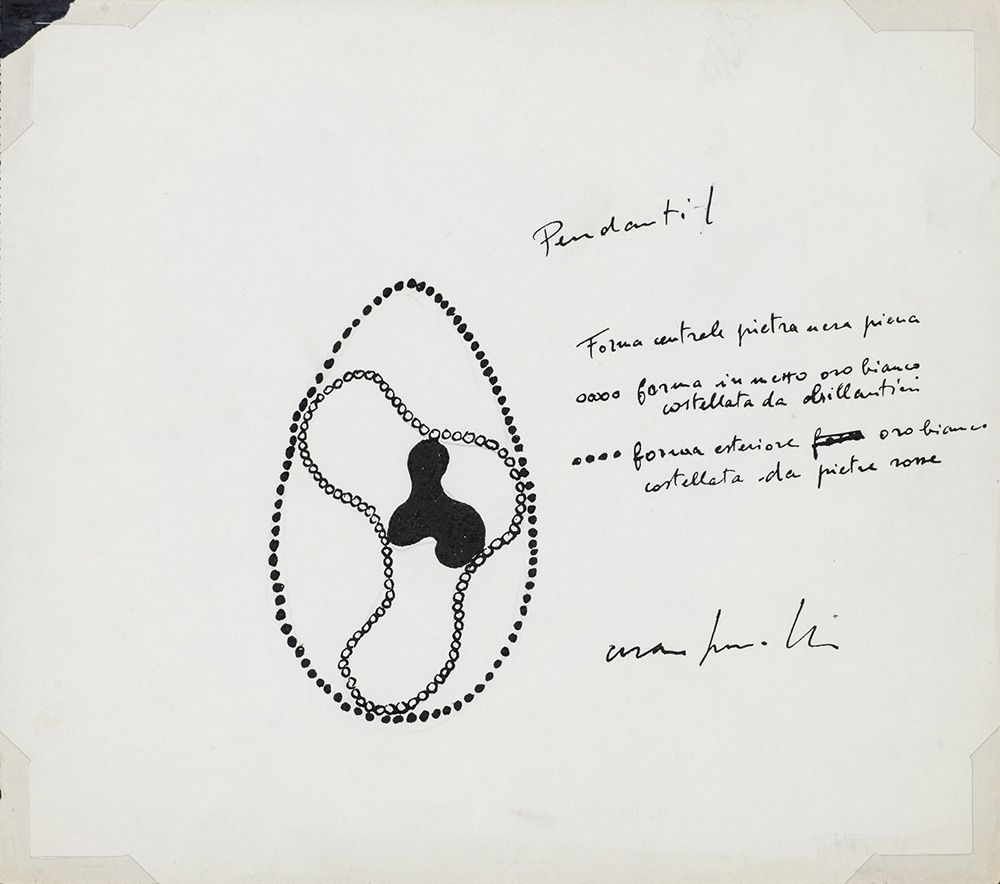 Pendantif
Forma centrale pietra nera piena
oooo forma in mezzo oro bianco
costellata da brillantini
•••• forma esteriore oro bianco
costellata da pietre rosse